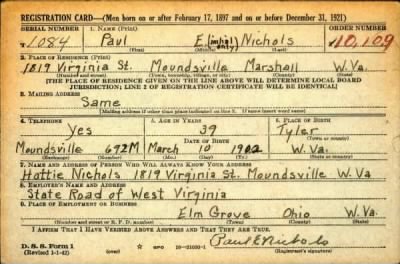 REGISTRATION CARD—(Men born on or after February 17, 1897 and on or before December 31, 1921)
SERIAL NUMBER 1. NAME (Print) ORDER NUMBER
1084 Paul E(mi only) Nichols 10,109
(First) (Middle) (Last)
2. PLACE OF RESIDENCE (Print)
1819 Virginia St. Moundsville Marshall W.Va.
(Number and street) (Town, township, village, or city) (County) (State)
[THE PLACE OF RESIDENCE GIVEN ON THE LINE ABOVE WILL DETERMINE LOCAL BOARD
JURISDICTION; LINE 2 OF REGISTRATION CERTIFICATE WILL BE IDENTICAL]
3. MAILING ADDRESS
Same
[Mailing address if other than place indicated on line 2. If same insert word same]
4. TELEPHONE 5. AGE IN YEARS 6. PLACE OF BIRTH
Yes 39 Tyler
DATE OF BIRTH (Town or county)
Moundsville 672M March 10 1902 W.Va.
(Exchange) (Number) (Mo.) (Day) (Yr.) (State or country)
7. NAME AND ADDRESS OF PERSON WHO WILL ALWAYS KNOW YOUR ADDRESS
Hattie Nichols 1819 Virginia St. Moundsville W Va
8. EMPLOYER'S NAME AND ADDRESS
State Road of West Virginia
9. PLACE OF EMPLOYMENT OR BUSINESS
Elm Grove Ohio W.Va.
(Number and street or R. F. D. number) (Town) (County) (State)
I AFFIRM THAT I HAVE VERIFIED ABOVE ANSWERS AND THAT THEY ARE TRUE.
D. S. S. Form 1
(Revised 1-1-42) GPO 16—21630-1 Paul E Nichols